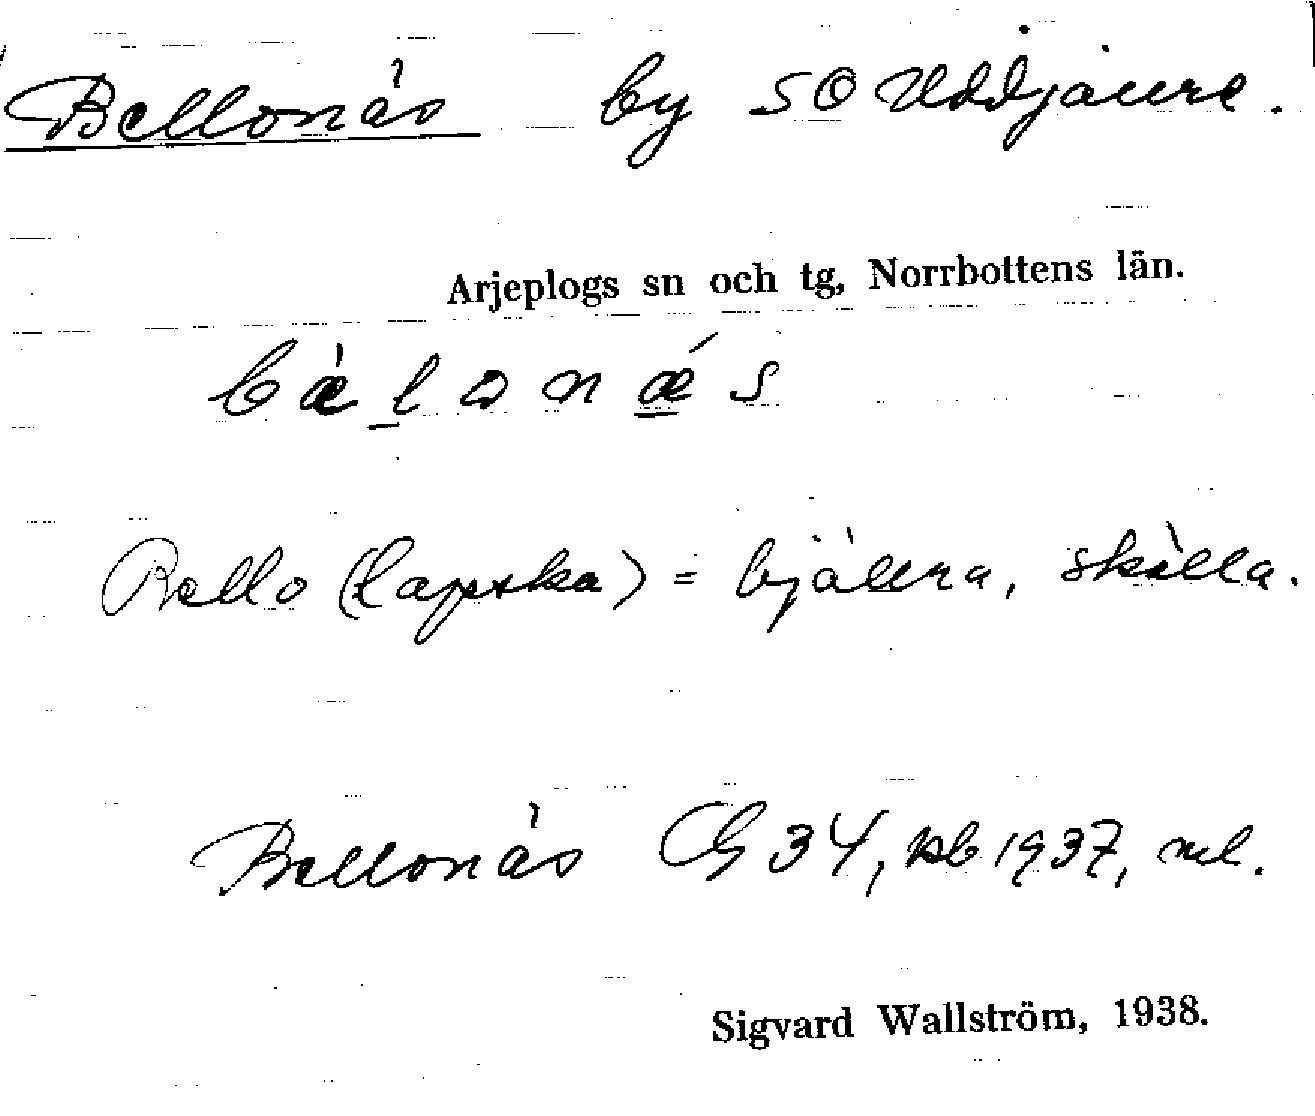 Bellonäs by SO Uddjaure.
Arjeplogs sn och tg, Norrbottens län.
bæ̀lonǽs
Bello (lapska) = bjällra, skälla.
Bellonäs G 34, kb 1937, ml.
Sigvard Wallström, 1938.